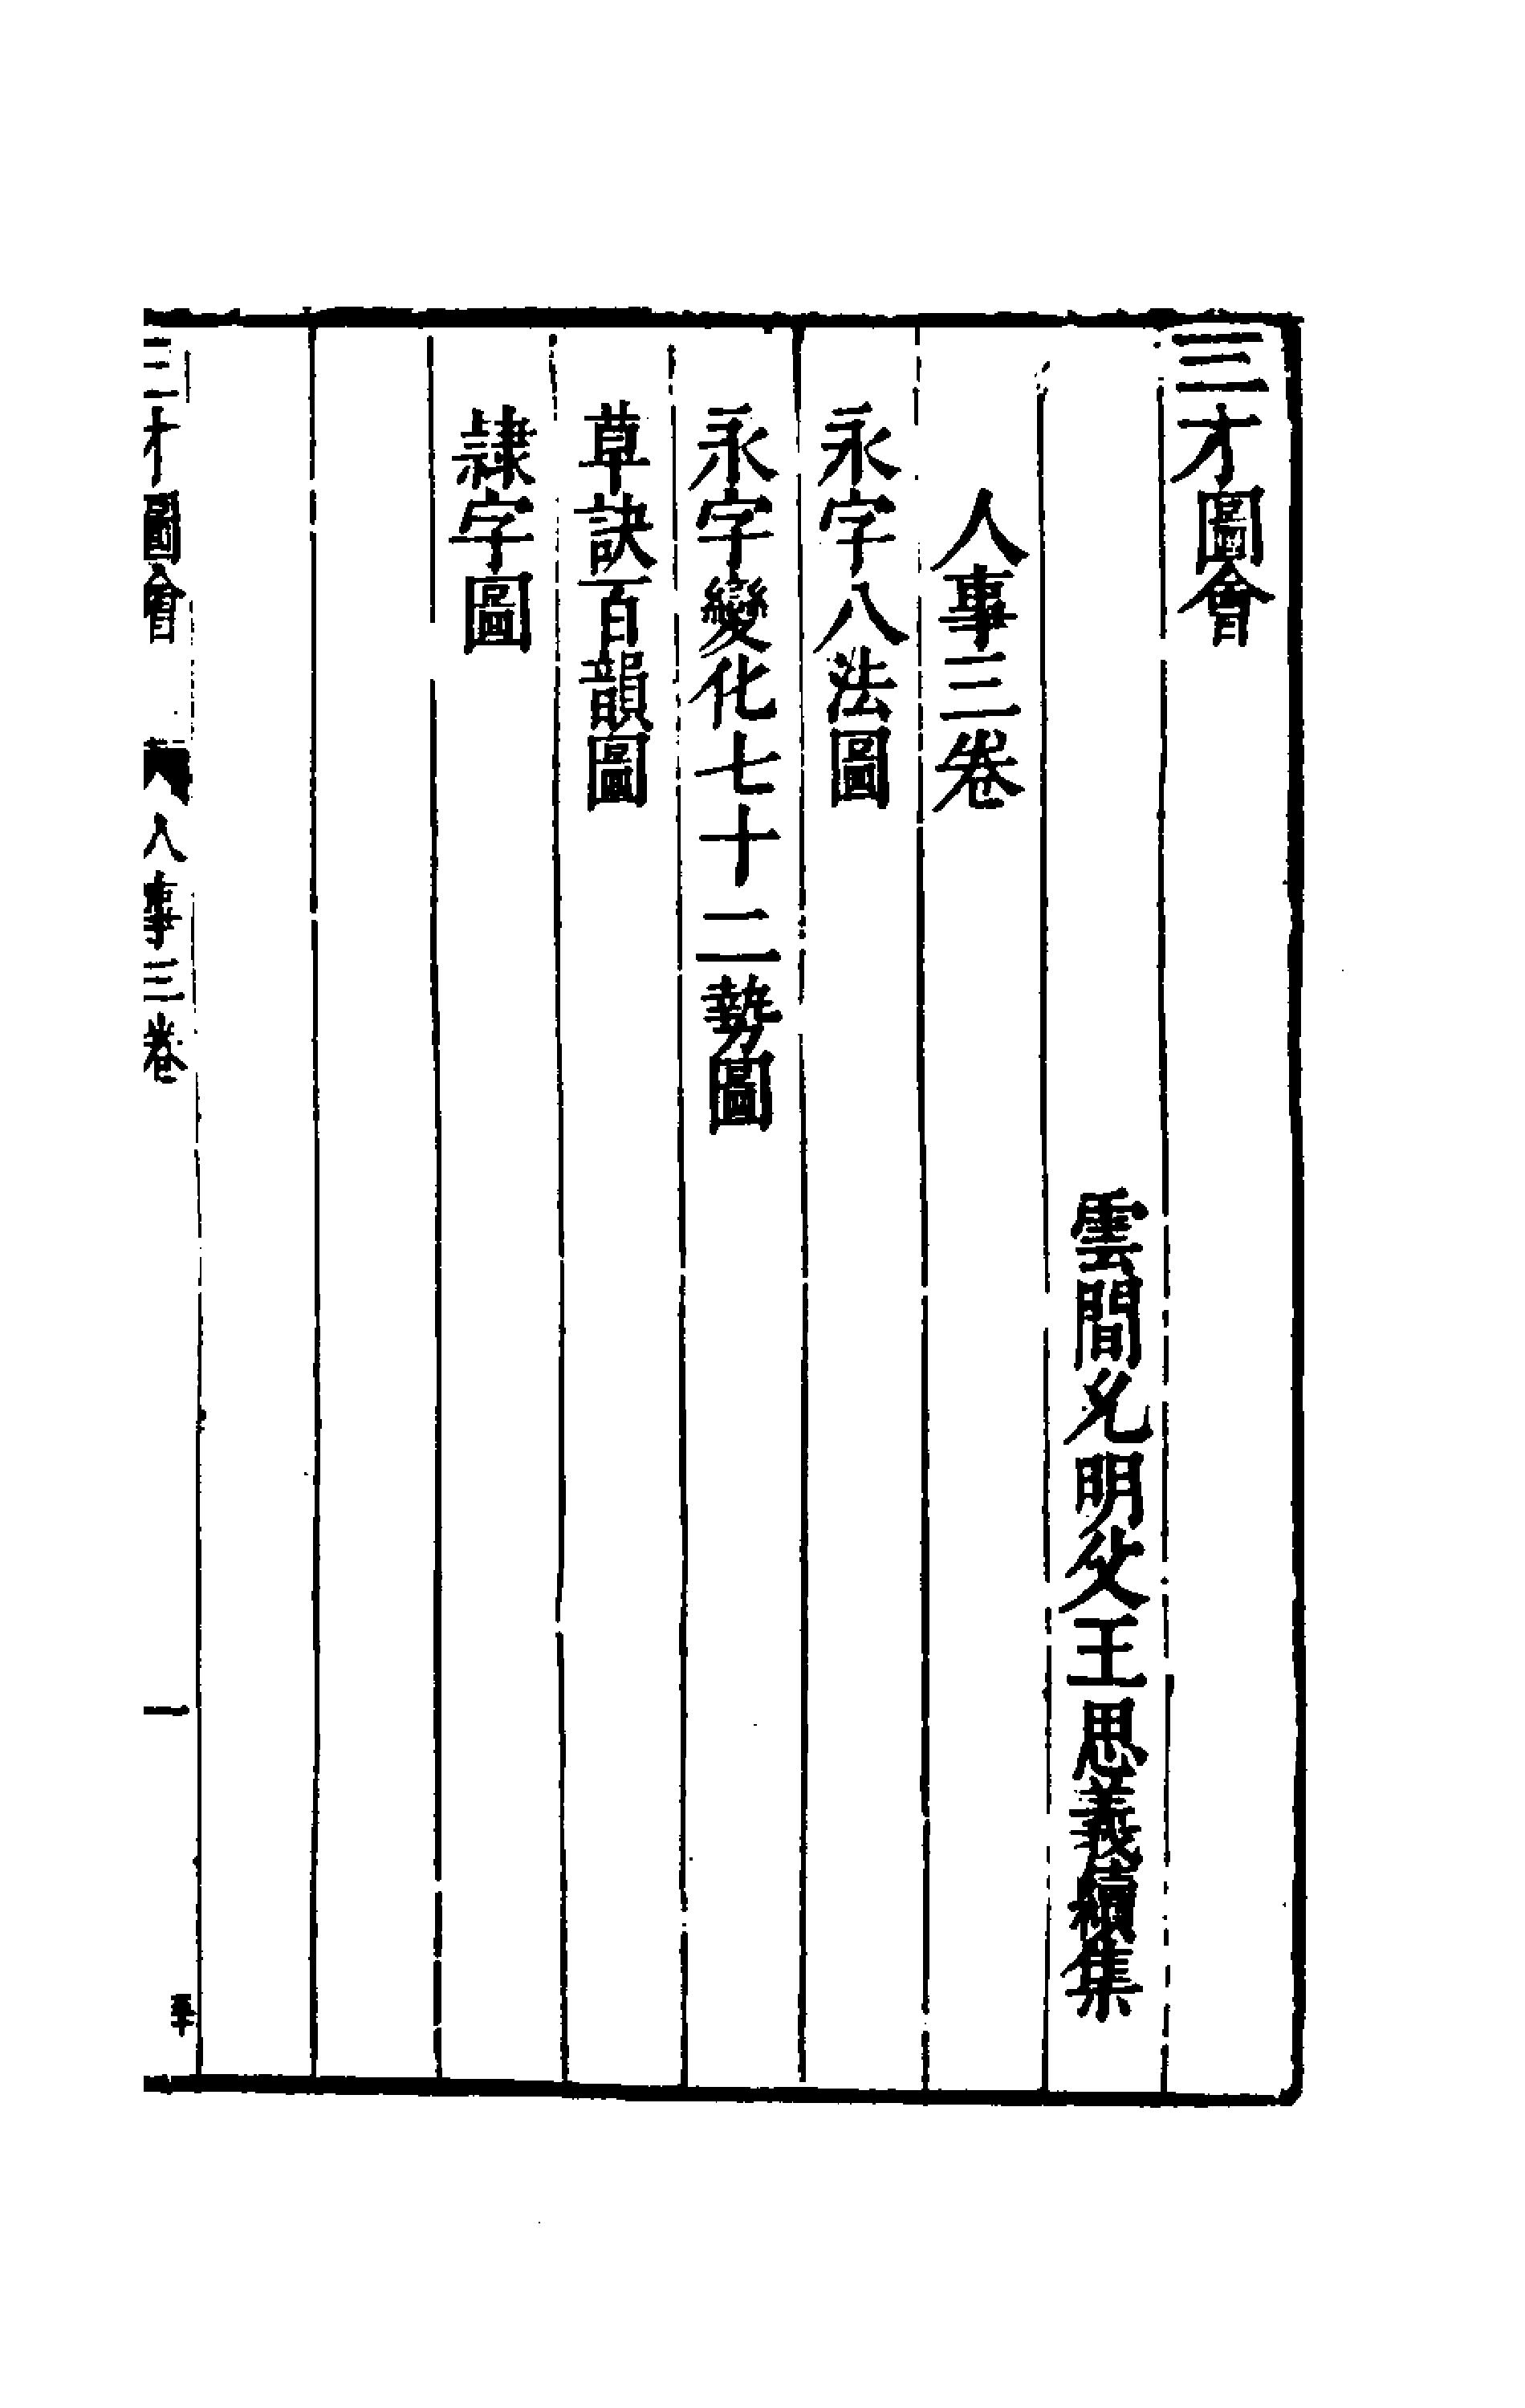 三才圖會
雲間允明父王思義續集
人事三卷
永字八法圖
永字變化七十二勢圖
草訣百韻圖
隷字圖
三才圖會 人事三卷 一